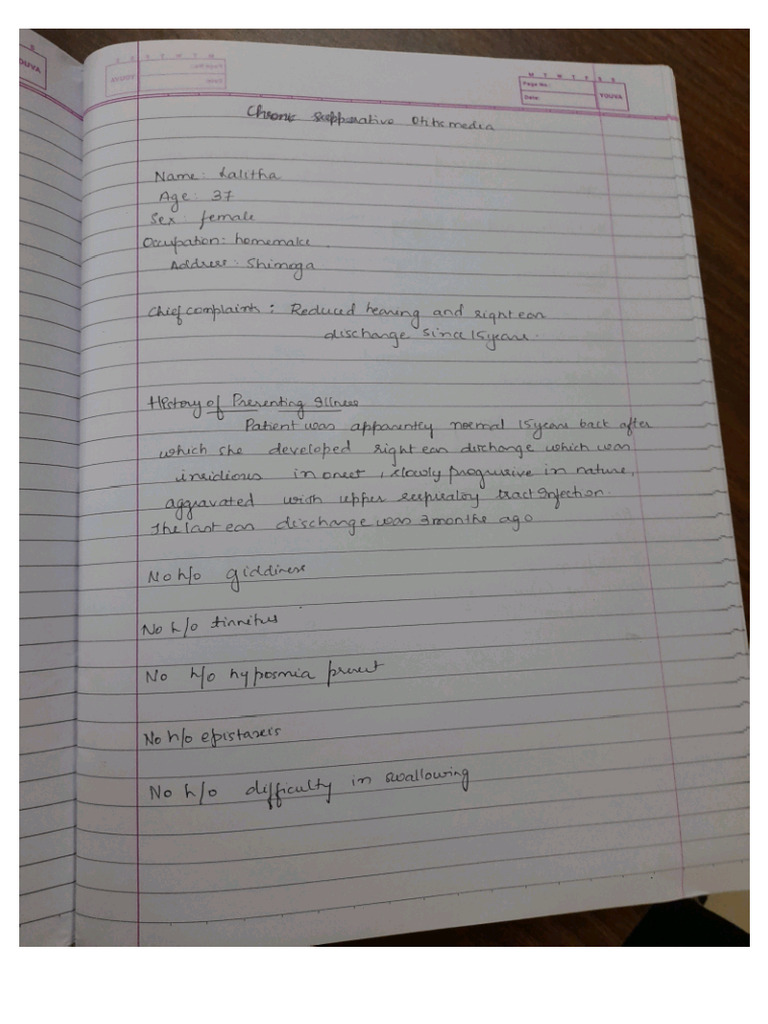 M T W T F S S
Page No.:
Date:
YOUVA
Chronic Suppurative Otitis media
Name: Lalitha
Age: 37
Sex: female
Occupation: homemake
Address: Shimoga
Chief complaint: Reduced hearing and right ear
discharge since 15 years.
History of Presenting Illness
Patient was apparently normal 15 years back after
which she developed right ear discharge which was
insidious in onset, slowly progressive in nature,
aggravated with upper respiratory tract Infection.
The last ear discharge was 3 months ago
No h/o giddiness
No h/o tinnitus
No h/o hyposmia present
No h/o epistaxis
No h/o difficulty in swallowing